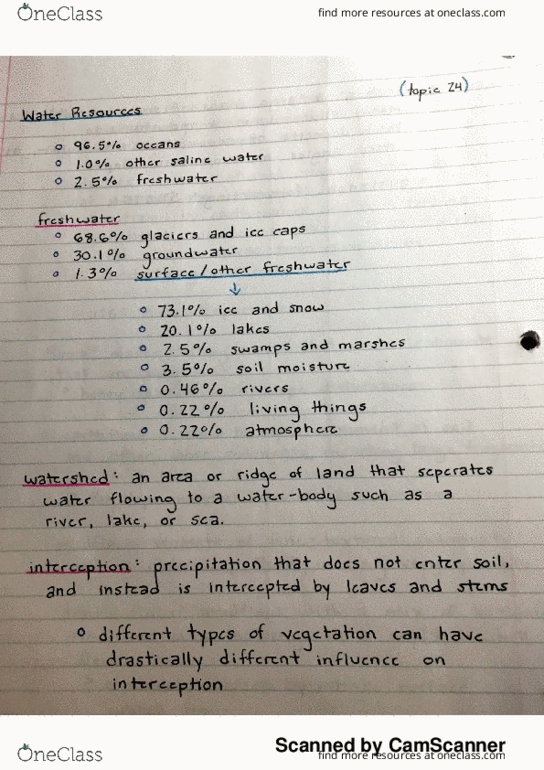 OneClass
find more resources at oneclass.com
(topic 24)
Water Resources
o 96.5% oceans
o 1.0% other saline water
o 2.5% freshwater
freshwater
o 68.6% glaciers and ice caps
o 30.1% groundwater
o 1.3% surface/other freshwater
↓
o 73.1% ice and snow
o 20.1% lakes
o 2.5% swamps and marshes
o 3.5% soil moisture
o 0.46% rivers
o 0.22% living things
o 0.22% atmosphere
watershed: an area or ridge of land that seperates
water flowing to a water-body such as a
river, lake, or sea.
interception: precipitation that does not enter soil,
and instead is intercepted by leaves and stems
o different types of vegetation can have
drastically different influence on
interception
Scanned by CamScanner
OneClass
find more resources at oneclass.com